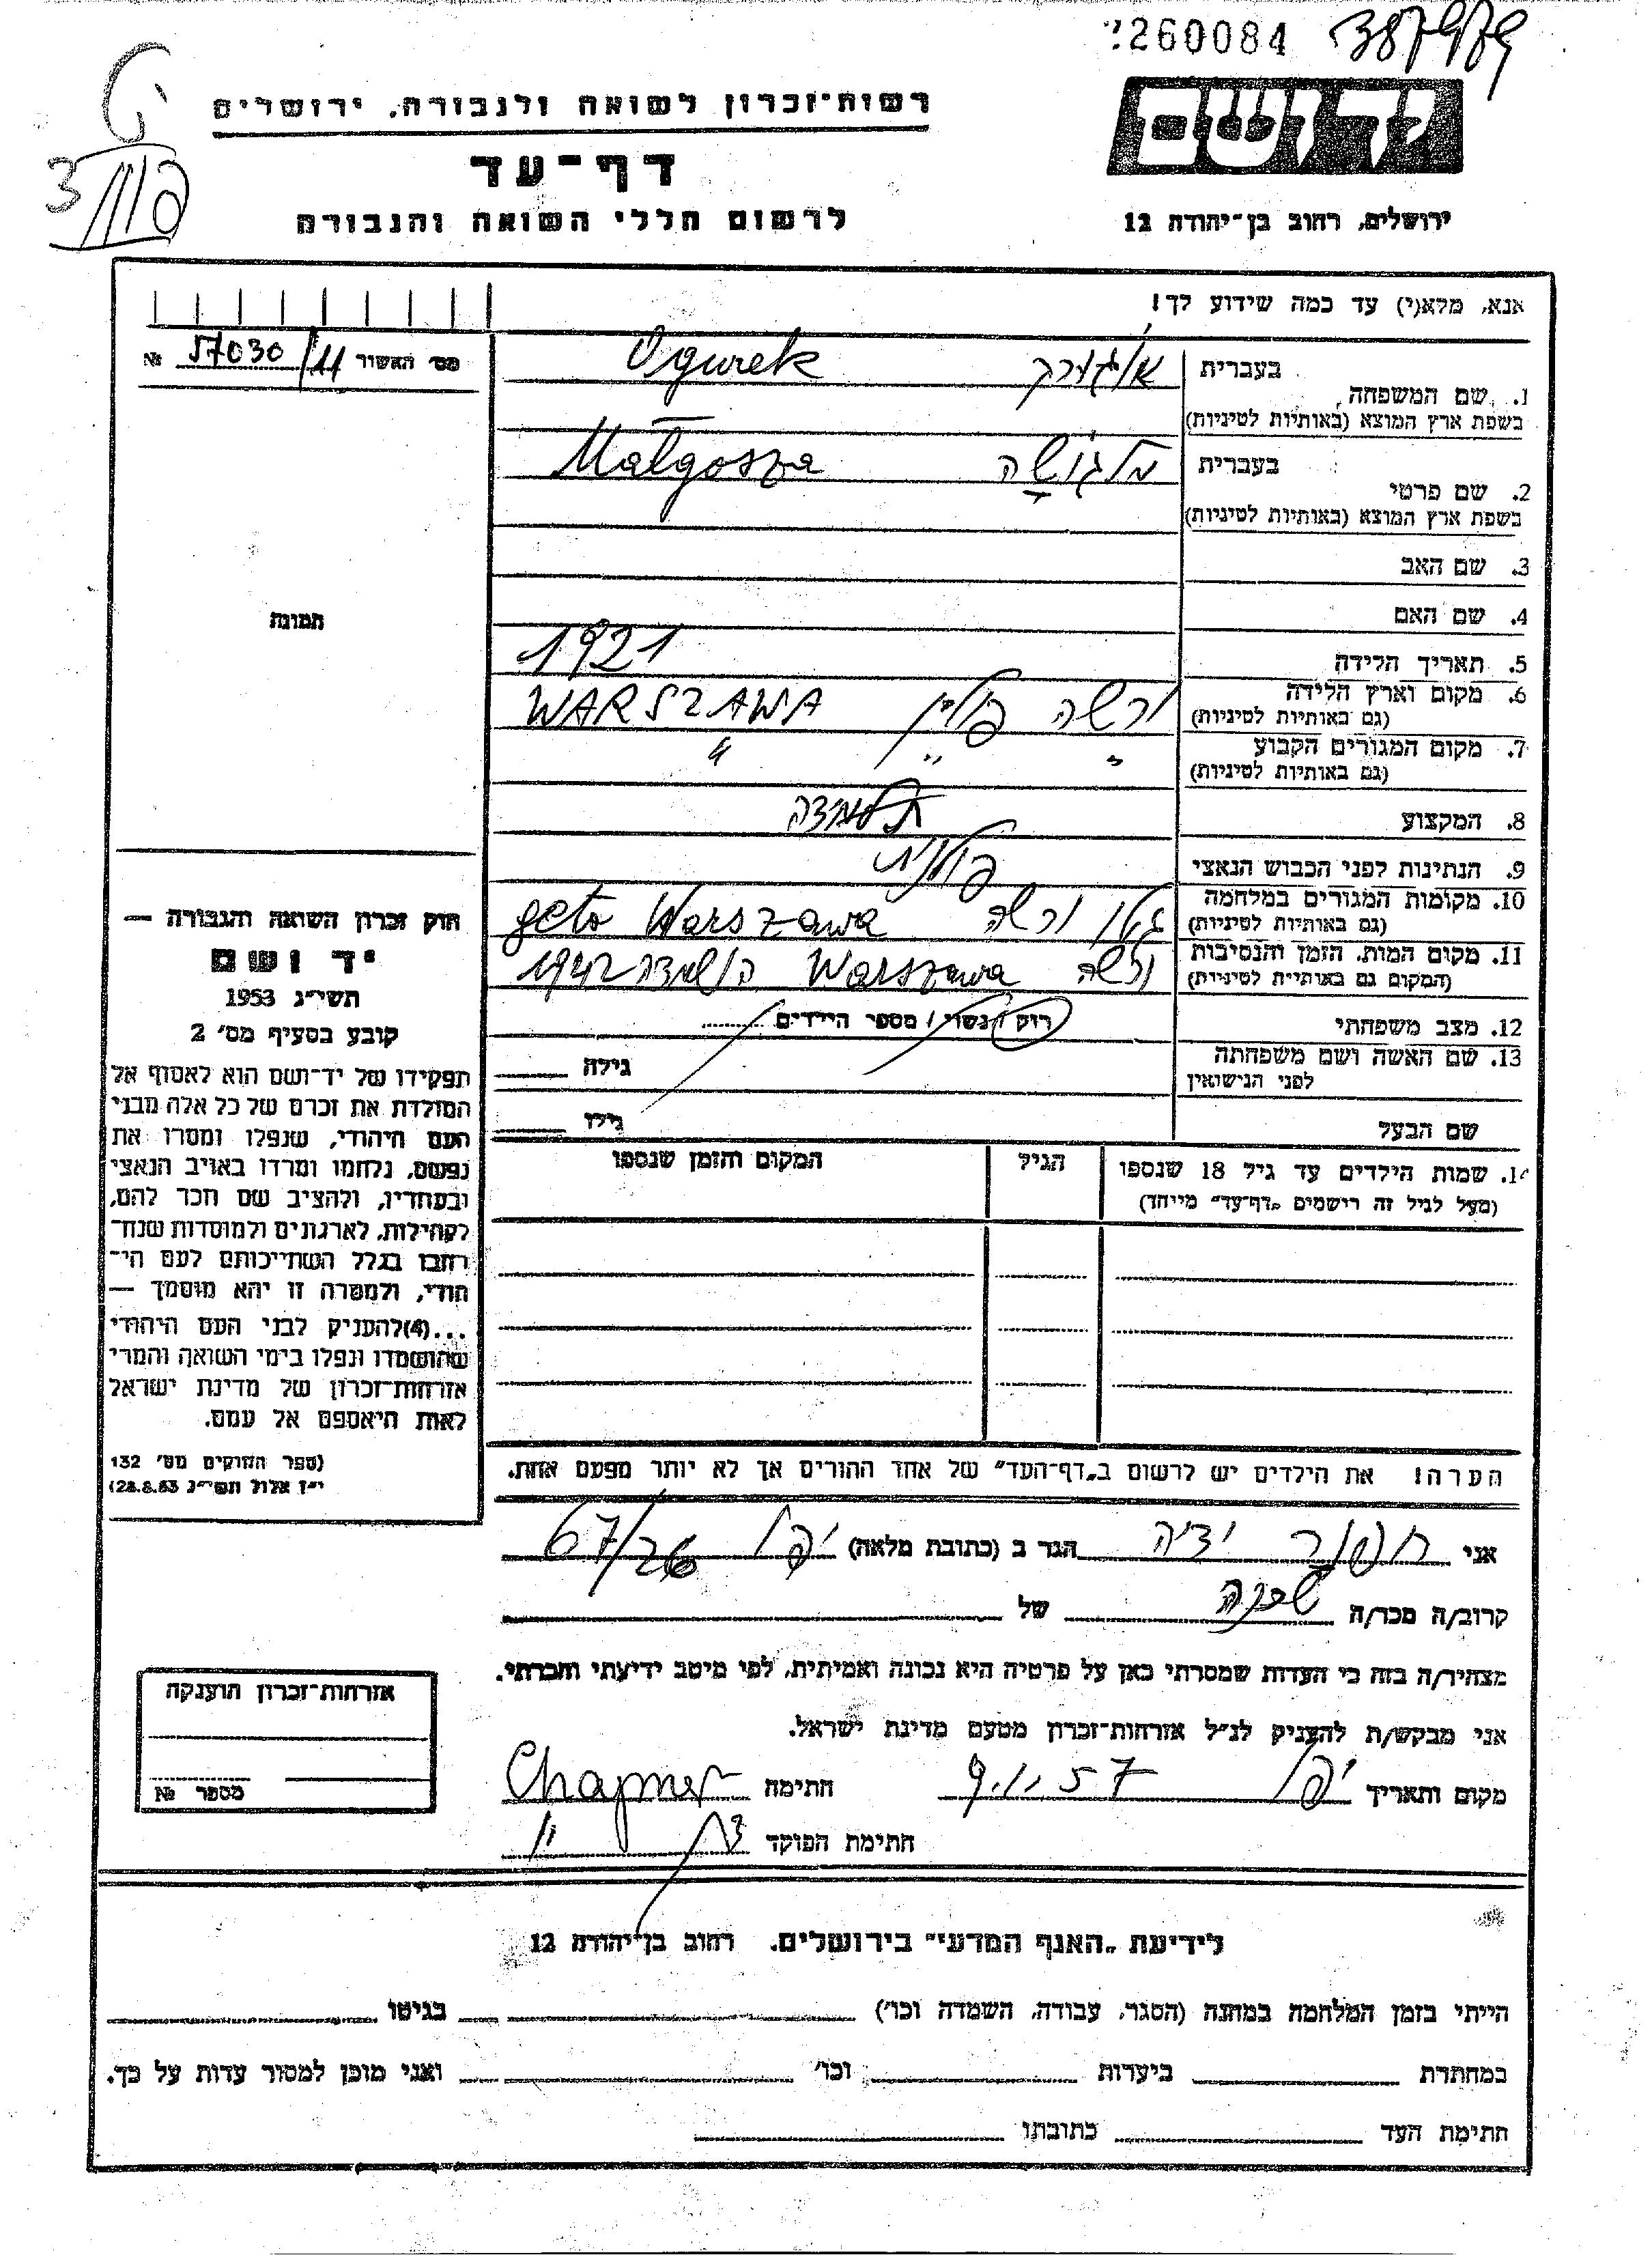 260084 387979
יד ושם
ירושלים, רחוב בן־יהודה 12
רשות־זכרון לשואה ולגבורה, ירושלים
דף־עד
לרשום חללי השואה והגבורה
אנא, מלא(י) עד כמה שידוע לך!
מס׳ האשור 57030/11 №
תמונה
1. שם המשפחה,
בעברית אוגורק Ogurek
בשפת ארץ המוצא (באותיות לטיניות)
2. שם פרטי
בעברית מלגושה Małgosza
בשפת ארץ המוצא (באותיות לטיניות)
3. שם האב
4. שם האם
5. תאריך הלידה 1921
6. מקום וארץ הלידה ורשה פולין WARSZAWA
(גם באותיות לטיניות)
7. מקום המגורים הקבוע " " "
(גם באותיות לטיניות)
8. המקצוע תלמידה
9. הנתינות לפני הכבוש הנאצי פולנית
10. מקומות המגורים במלחמה גטו ורשה geto Warszawa
(גם באותיות לטיניות)
11. מקום המות, הזמן והנסיבות ורשה Warszawa 1942
(המקום גם באותיות לטיניות)
12. מצב משפחתי רווק / נשוי / מספר הילדים
13. שם האשה ושם משפחתה גילה
לפני הנישואין
שם הבעל גילו
14. שמות הילדים עד גיל 18 שנספו הגיל המקום והזמן שנספו
(מעל לגיל זה רישמים „דף־עד״ מייחד)
הערה! את הילדים יש לרשום ב„דף־העד״ של אחד ההורים אך לא יותר מפעם אחת.
חוק זכרון השואה והגבורה —
יד ושם
תשי״ג 1953
קובע בסעיף מס׳ 2
תפקידו של יד־ושם הוא לאסוף אל
המולדת את זכרם של כל אלה מבני
העם היהודי, שנפלו ומסרו את
נפשם, נלחמו ומרדו באויב הנאצי
ובעוזריו, ולהציב שם וזכר להם,
לקהילות, לארגונים ולמוסדות שנח־
רבו בגלל השתייכותם לעם הי־
הודי, ולמטרה זו יהא מוסמך —
...(4)להעניק לבני העם היהודי
שהושמדו ונפלו בימי השואה והמרי
אזרחות־זכרון של מדינת ישראל
לאות היאספם אל עמם.
(ספר החוקים מס׳ 132
י״ז אלול תשי״ג 28.8.53)
אני הגר ב (כתובת מלאה) יפו 67/26
קרוב/ה מכר/ה שכנה של
מצהיר/ה בזה כי העדות שמסרתי כאן על פרטיה היא נכונה ואמיתית, לפי מיטב ידיעתי והכרתי.
אני מבקש/ת להעניק לנ״ל אזרחות־זכרון מטעם מדינת ישראל.
מקום ותאריך יפו 9.1.57 חתימה
חתימת הפוקד
אזרחות־זכרון הוענקה
מספר №
לידיעת „האגף המדעי״ בירושלים, רחוב בן־יהודה 12
הייתי בזמן המלחמה במחנה (הסגר, עבודה, השמדה וכו׳) בגיטו
במחתרת ביערות וכו׳ ואני מוכן למסור עדות על כך.
חתימת העד כתובתו